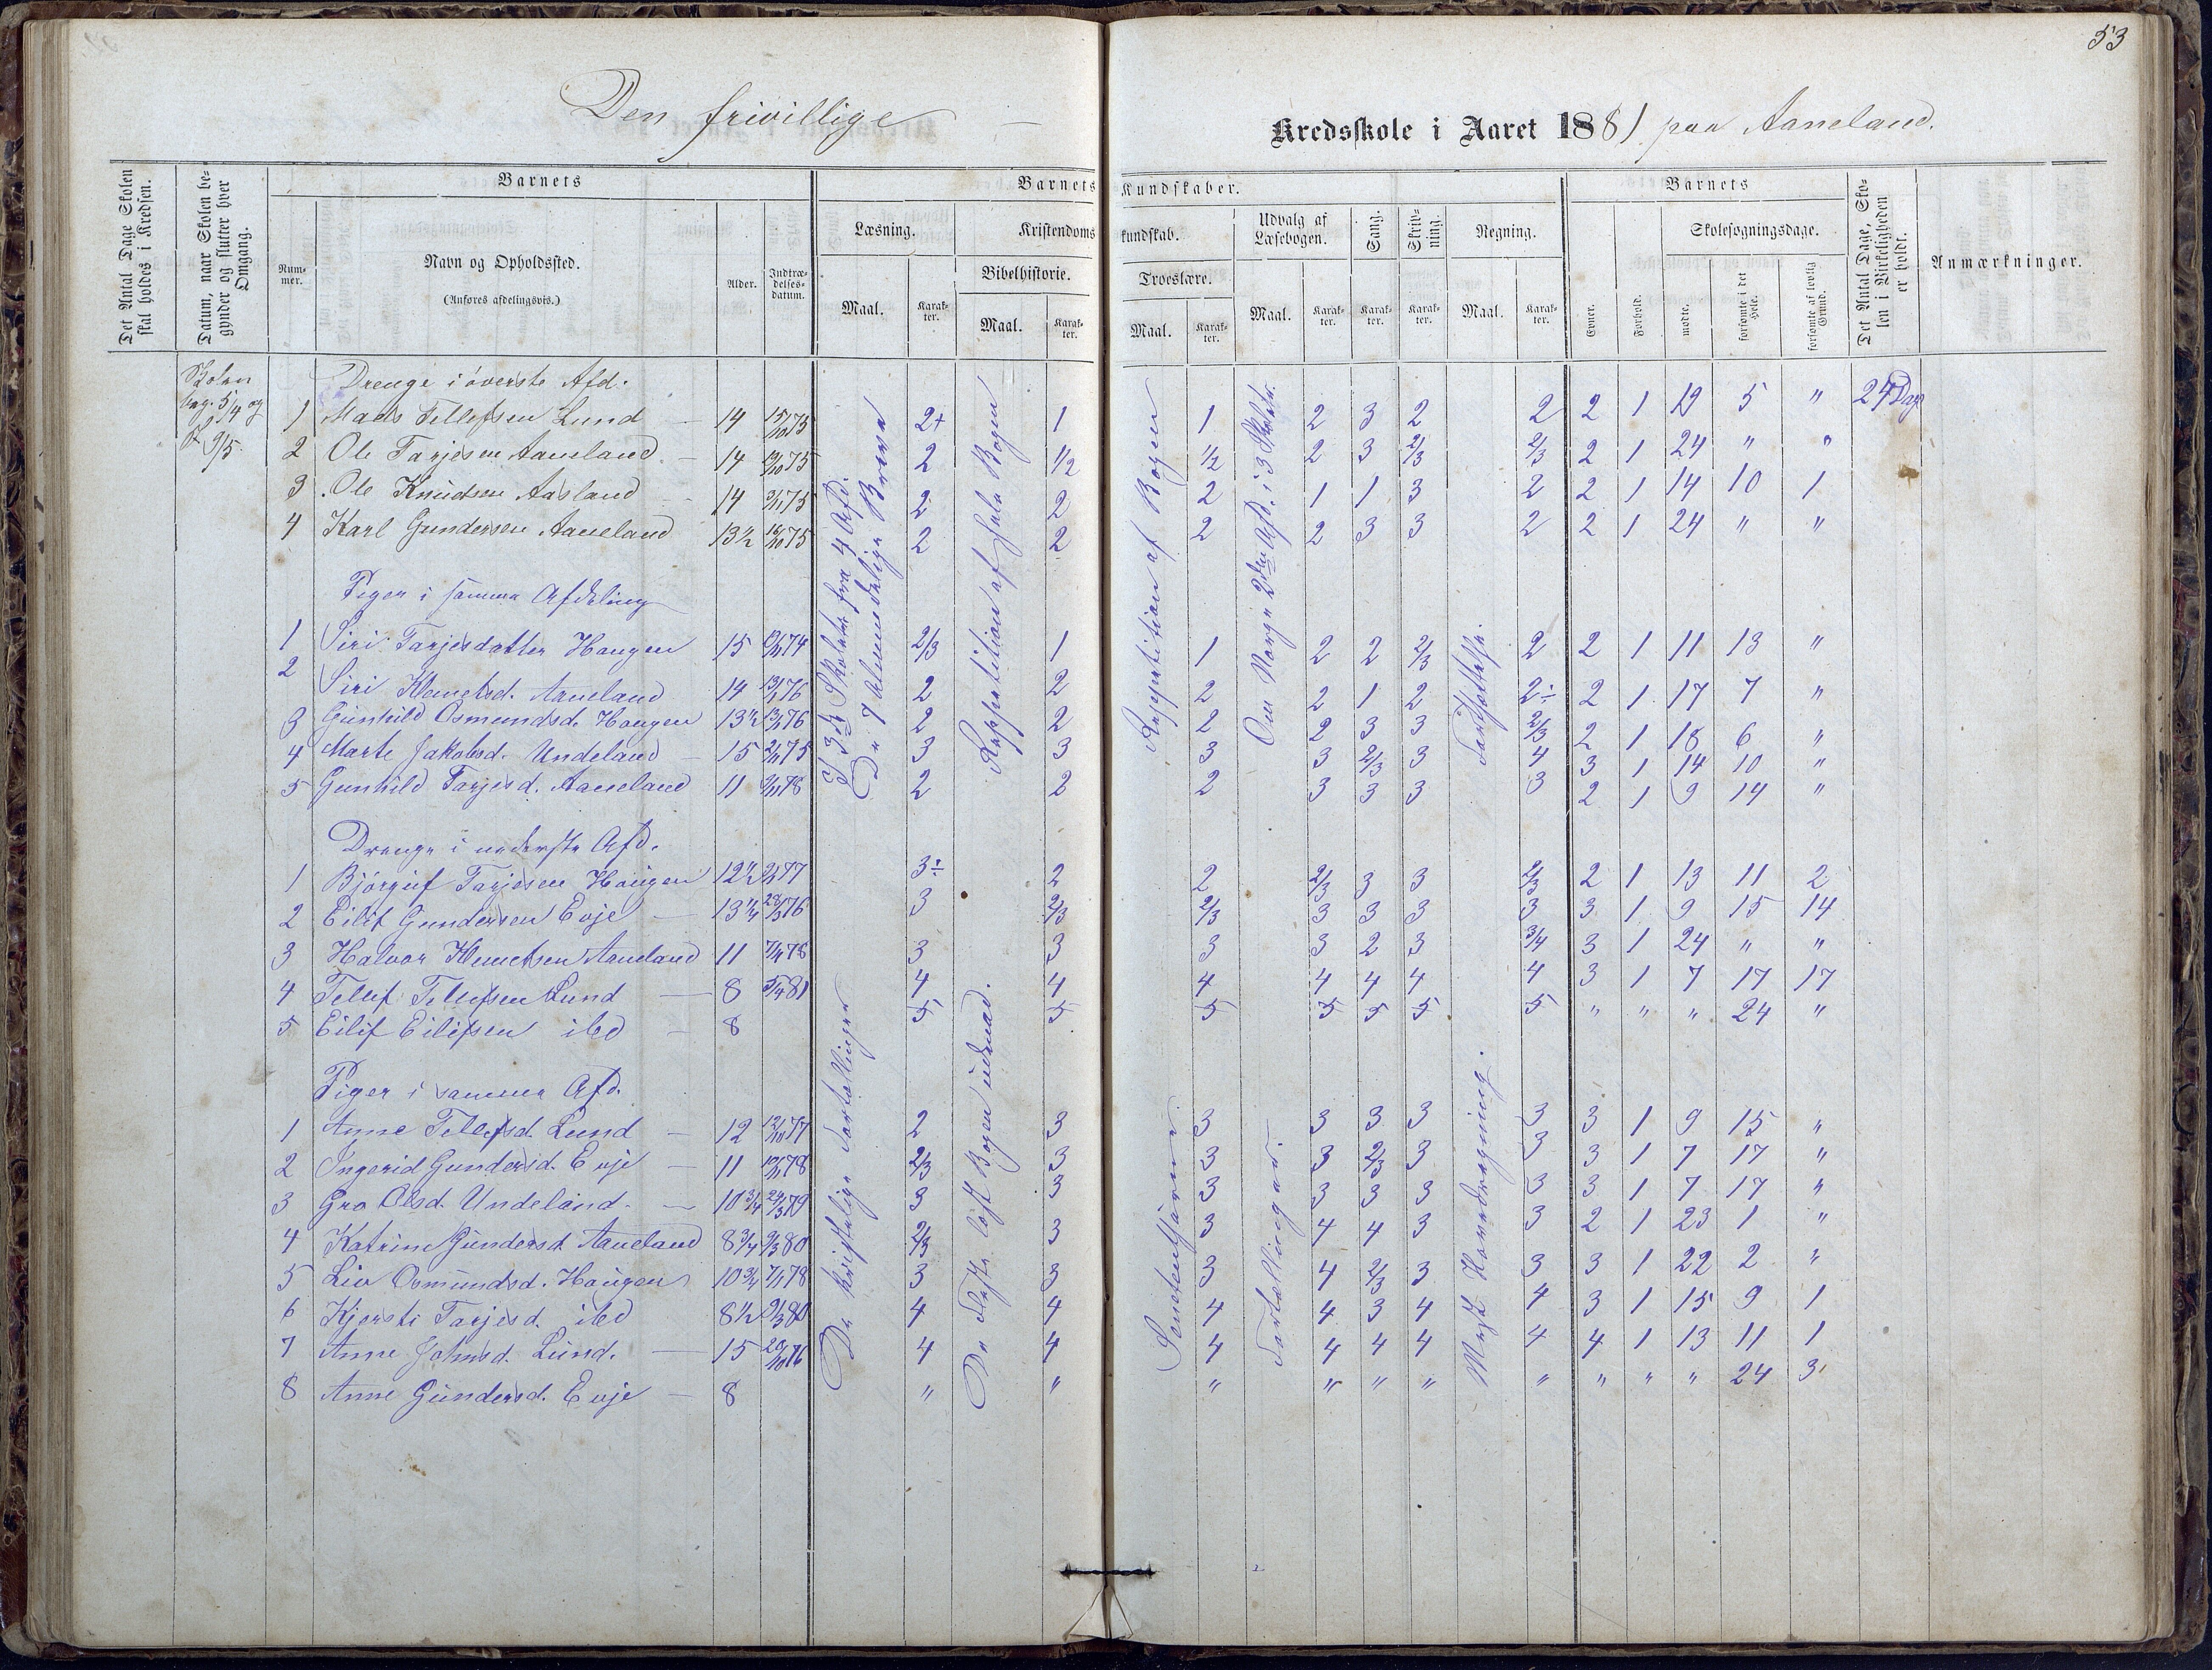 53
Den frivillige Kredsskole i Aaret 1881 paa Aaneland.
Det Antal Dage Skolen skal holdes i Kredsen.
Datum, naar Skolen begynder og slutter hver Omgang.
Barnets
Num-mer.
Navn og Opholdssted.
(Anføres afdelingsvis.)
Alder.
Indtræ-delses-datum.
Barnets Kundskaber.
Læsning.
Maal. Karak-ter.
Kristendomskundskab.
Bibelhistorie.
Maal. Karak-ter.
Troeslære.
Maal. Karak-ter.
Udvalg af Læsebogen.
Maal. Karak-ter.
Sang.
Karak-ter.
Skriv-ning.
Karak-ter.
Regning.
Maal. Karak-ter.
Barnets
Evner.
Forhold.
Skolesøgningsdage.
mødte.
forsømte i det Hele.
forsømte af lovlig Grund.
Det Antal Dage, Skolen i Virkeligheden er holdt.
Anmærkninger.
Skolen
beg. 5/4 og
9/5.
Drenge i øverste Afd.
1 Mads Tellefsen Lund 14 15/10 75 2+ 1 1 2 3 2 2 2 1 19 5 " 24 Dage
2 Ole Tarjesen Aaneland 14 19/10 75 2 1/2 1/2 2 3 2/3 2/3 2 1 24 " "
3 Ole Knudsen Aasland 14 9/11 75 2 2 2 1 1 3 2 2 1 14 10 1
4 Karl Gundersen Aaneland 13½ 16/10 75 2 2 2 2 3 3 2 2 1 24 " "
Piger i samme Afdeling
1 Siri Tarjesdatter Haugen 15 2/3 1 1 2 2 2/3 2 2 1 11 13 "
2 Siri Klemetsd. Aaneland 14 13/1 76 2 2 2 2 1 2 2÷ 2 1 17 7 "
3 Gunhild Osmundsd. Haugen 13½ 13/1 76 2 2 2 2 3 3 2/3 2 1 18 6 "
4 Marte Jakobsd. Undeland 15 3 3 3 3 2/3 3 4 3 1 14 10 "
5 Gunhild Tarjesd. Aaneland 11 9/11 78 2 2 2 3 3 3 3 2 1 9 14 "
Drenge i nederste Afd.
1 Bjørguf Tarjesen Haugen 12½ 3÷ 2 2 2/3 3 3 2/3 2 1 13 11 2
2 Eilif Gundersen Evje 13¼ 28/3 76 3 2/3 2/3 3 3 3 3 3 1 9 15 14
3 Halvor Klemetsen Aaneland 11 3 3 3 3 2 3 3/4 3 1 24 " "
4 Tellef Tellefsen Lund 8 5/4 81 4 4 4 4 4 4 4 3 1 7 17 17
5 Eilif Eilifsen ibd 8 5 5 5 5 5 5 5 " " " 24 "
Piger i samme Afd.
1 Anne Tellefsd. Lund 12 12/10 77 2 3 3 3 3 3 3 3 1 9 15 "
2 Ingerid Gundersd. Evje 11 2/3 3 3 3 2/3 3 3 3 1 7 17 "
3 Gro Olsd. Undeland 10¾ 24/3 79 3 3 3 3 3 3 3 3 1 7 17 "
4 Katrine Gundersd. Aaneland 8¾ 9/3 80 2/3 3 3 4 4 3 3 2 1 23 1 "
5 Liv Osmundsd. Haugen 10¾ 7/1 78 3 3 3 4 2/3 3 3 3 1 22 2 "
6 Kjersti Tarjesd. ibd 8½ 9/3 80 4 4 4 4 3 4 4 3 1 15 9 1
7 Anne Johnsd. Lund. 15 20/10 76 4 4 4 4 4 4 4 4 1 13 11 1
8 Anne Gundersd. Evje 8 " " " " " " " " " " 24 3
De 7 Almindelige Breve
Reppetition af hele Bogen
Reppetition af Bogen
Om Norge 2den Afd. i 3 Skoletr.
De kristelige Fortællinger
De fleste løst Bogen udenad.
Sendenfjærn
Fortællingerne.
Mest Hoveddregning.